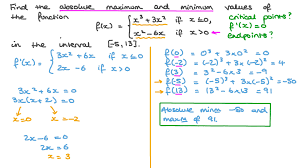 Find the absolute maximum and minimum values of
the function f(x) = { x³ + 3x² if x ≤ 0,
x² - 6x if x > 0
in the interval [-5, 13].
critical points?
f'(x) = 0
endpoints?
f'(x) = { 3x² + 6x if x ≤ 0
2x - 6 if x > 0
3x² + 6x = 0
3x(x + 2) = 0
x = 0 x = -2
2x - 6 = 0
2x = 6
x = 3
f(0) = 0³ + 3x0² = 0
f(-2) = (-2)³ + 3x(-2)² = 4
f(3) = 3² - 6x3 = -9
→ f(-5) = (-5)³ + 3x(-5)² = -50
→ f(13) = 13² - 6x13 = 91
Absolute min is -50 and
max is of 91.